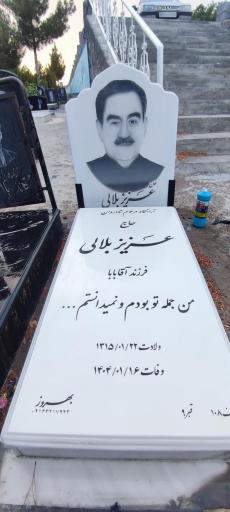 عزیز بلالی
آرامگاه مرحوم شادروان
حاج
عزیز بلالی
فرزند آقابابا
من جمله تو بودم و نمیدانستم ...
ولادت ۱۳۱۵/۰۱/۲۲
وفات ۱۴۰۴/۰۱/۱۶
بهروز
قبر ۹
۱۰۸